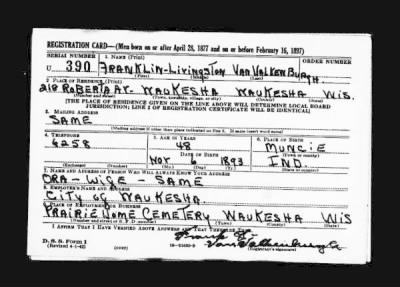 REGISTRATION CARD—(Men born on or after April 28, 1877 and on or before February 16, 1897)
SERIAL NUMBER 1. NAME (Print) ORDER NUMBER
U 390 FRANKLIN-LIVINGSTON VAN VALKENBURGH
(First) (Middle) (Last)
2. PLACE OF RESIDENCE (Print)
218 ROBERTA AV. WAUKESHA WAUKESHA WIS.
(Number and street) (Town, township, village, or city) (County) (State)
[THE PLACE OF RESIDENCE GIVEN ON THE LINE ABOVE WILL DETERMINE LOCAL BOARD
JURISDICTION; LINE 2 OF REGISTRATION CERTIFICATE WILL BE IDENTICAL]
3. MAILING ADDRESS
SAME
[Mailing address if other than place indicated on line 2. If same insert word same]
4. TELEPHONE 5. AGE IN YEARS 6. PLACE OF BIRTH
6258 48 MUNCIE
DATE OF BIRTH (Town or county)
NOV 6 1893 IND.
(Exchange) (Number) (Mo.) (Day) (Yr.) (State or country)
7. NAME AND ADDRESS OF PERSON WHO WILL ALWAYS KNOW YOUR ADDRESS
ORA - WIFE - SAME
8. EMPLOYER'S NAME AND ADDRESS
CITY OF WAUKESHA
9. PLACE OF EMPLOYMENT OR BUSINESS
PRAIRIE HOME CEMETERY WAUKESHA WIS
(Number and street or R. F. D. number) (Town) (County) (State)
I AFFIRM THAT I HAVE VERIFIED ABOVE ANSWERS AND THAT THEY ARE TRUE.
D. S. S. Form 1
(Revised 4-1-42) (over)
Van Valkenburgh
(Registrant's signature)